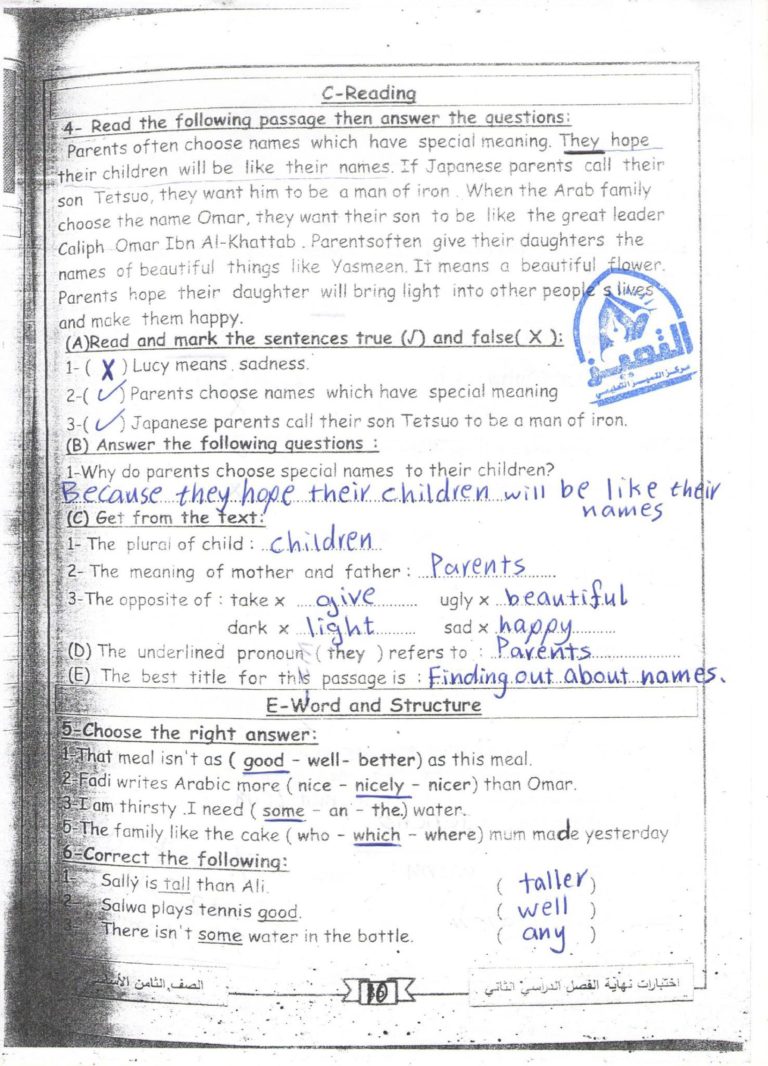 C-Reading
4- Read the following passage then answer the questions:
Parents often choose names which have special meaning. They hope
their children will be like their names. If Japanese parents call their
son Tetsuo, they want him to be a man of iron . When the Arab family
choose the name Omar, they want their son to be like the great leader
Caliph Omar Ibn Al-Khattab . Parentsoften give their daughters the
names of beautiful things like Yasmeen. It means a beautiful flower.
Parents hope their daughter will bring light into other people's lives
and make them happy.
التميز
مركز التميز التعليمي
(A)Read and mark the sentences true (√) and false( X ):
1- ( X ) Lucy means sadness.
2-( ✓ ) Parents choose names which have special meaning
3-( ✓ ) Japanese parents call their son Tetsuo to be a man of iron.
(B) Answer the following questions :
1-Why do parents choose special names to their children?
Because they hope their children will be like their
names
(C) Get from the text:
1- The plural of child : children
2- The meaning of mother and father : Parents
3-The opposite of : take x give ugly x beautiful
dark x light sad x happy
(D) The underlined pronoun ( they ) refers to : Parents
(E) The best title for this passage is : Finding out about names.
E-Word and Structure
5-Choose the right answer:
1-That meal isn't as ( good - well- better) as this meal.
2-Fadi writes Arabic more ( nice - nicely - nicer) than Omar.
3-I am thirsty .I need ( some - an - the.) water.
5-The family like the cake ( who - which - where) mum made yesterday
6-Correct the following:
1- Sally is tall than Ali. ( taller )
2- Salwa plays tennis good. ( well )
3- There isn't some water in the bottle. ( any )
اختبارات نهاية الفصل الدراسي الثاني
الصف الثامن